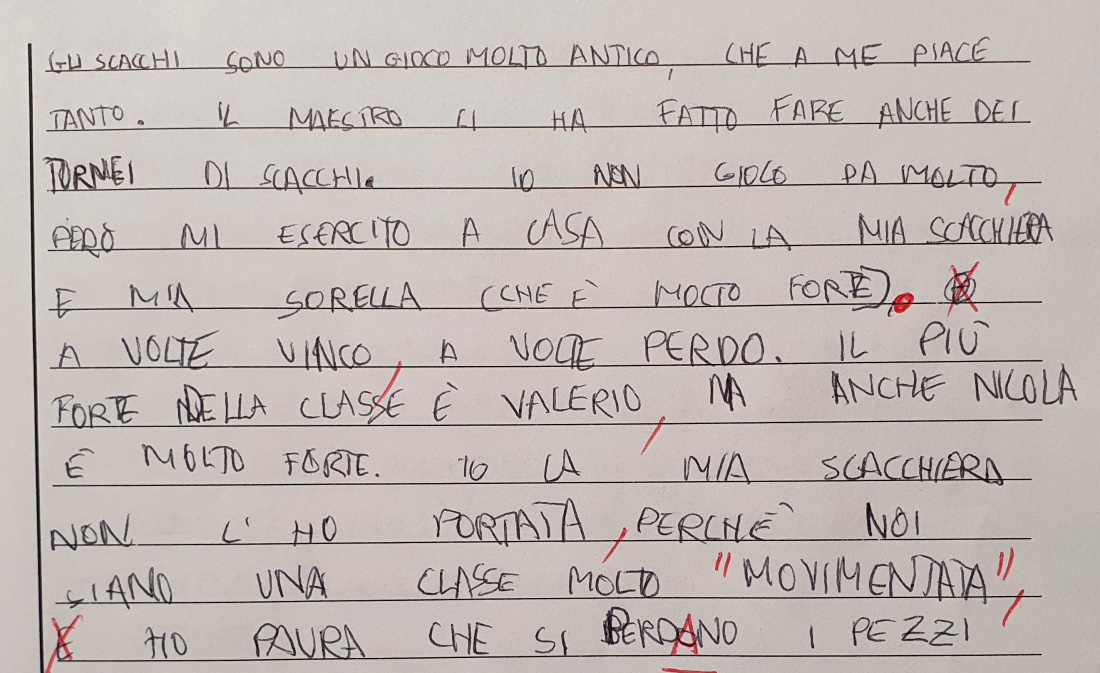 GLI SCACCHI SONO UN GIOCO MOLTO ANTICO, CHE A ME PIACE
TANTO. IL MAESTRO CI HA FATTO FARE ANCHE DEI
TORNEI DI SCACCHI. IO NON GIOCO DA MOLTO,
PERÒ MI ESERCITO A CASA CON LA MIA SCACCHIERA
E MIA SORELLA (CHE È MOLTO FORTE).
A VOLTE VINCO, A VOLTE PERDO. IL PIÙ
FORTE NELLA CLASSE È VALERIO, MA ANCHE NICOLA
È MOLTO FORTE. IO LA MIA SCACCHIERA
NON L'HO PORTATA, PERCHÈ NOI
SIAMO UNA CLASSE MOLTO "MOVIMENTATA",
E HO PAURA CHE SI PERDANO I PEZZI